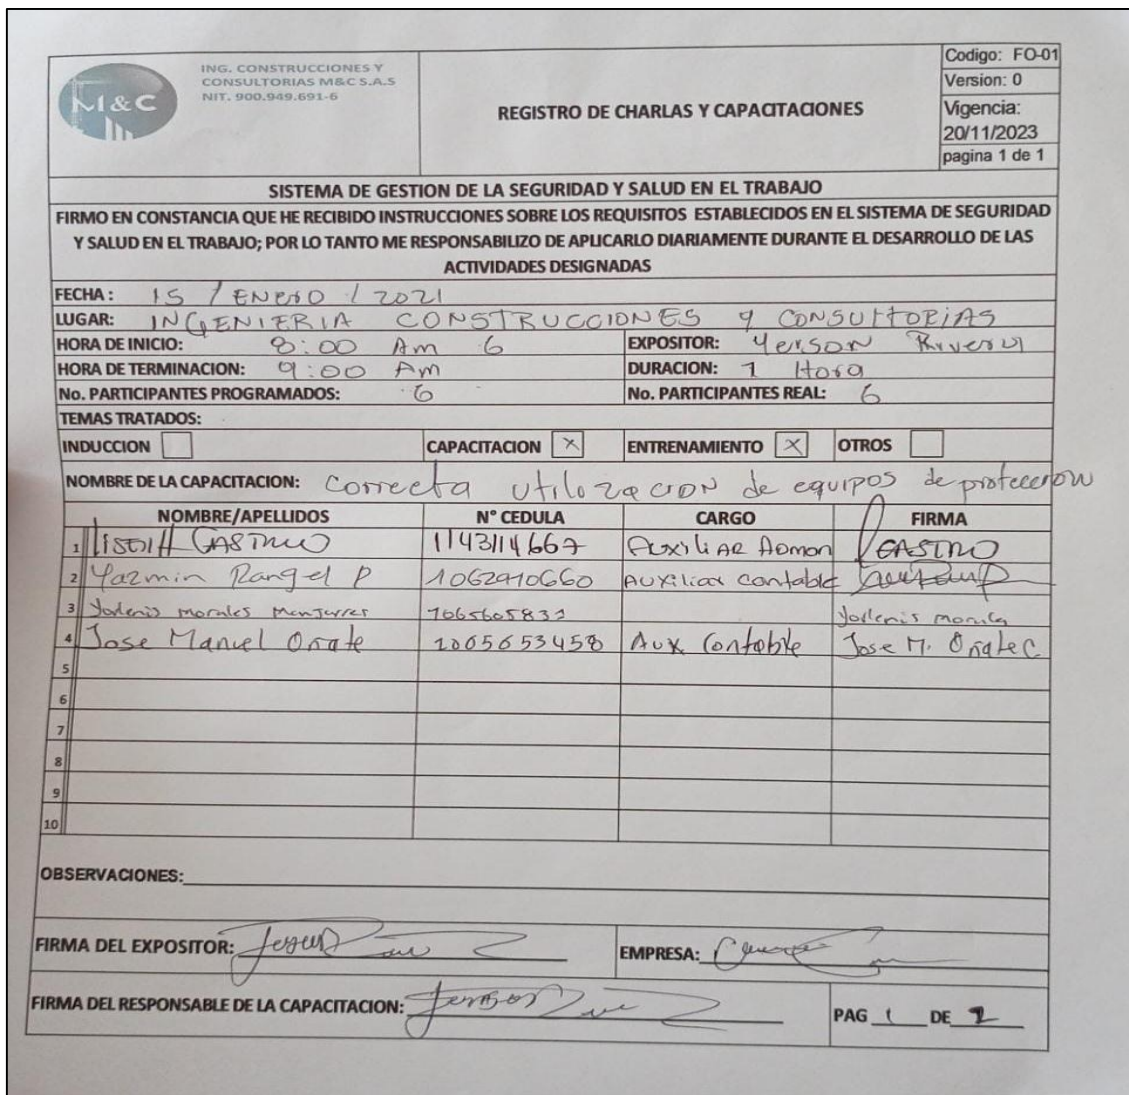 M&C
ING. CONSTRUCCIONES Y
CONSULTORIAS M&C S.A.S
NIT. 900.949.691-6
REGISTRO DE CHARLAS Y CAPACITACIONES
Codigo: FO-01
Version: 0
Vigencia:
20/11/2023
pagina 1 de 1
SISTEMA DE GESTION DE LA SEGURIDAD Y SALUD EN EL TRABAJO
FIRMO EN CONSTANCIA QUE HE RECIBIDO INSTRUCCIONES SOBRE LOS REQUISITOS ESTABLECIDOS EN EL SISTEMA DE SEGURIDAD
Y SALUD EN EL TRABAJO; POR LO TANTO ME RESPONSABILIZO DE APLICARLO DIARIAMENTE DURANTE EL DESARROLLO DE LAS
ACTIVIDADES DESIGNADAS
FECHA: 15 / ENERO / 2021
LUGAR: INGENIERIA CONSTRUCCIONES Y CONSULTORIAS
HORA DE INICIO: 8:00 Am 6 EXPOSITOR: Yerson Rivera
HORA DE TERMINACION: 9:00 Am DURACION: 1 Hora
No. PARTICIPANTES PROGRAMADOS: 6 No. PARTICIPANTES REAL: 6
TEMAS TRATADOS:
INDUCCION CAPACITACION X ENTRENAMIENTO X OTROS
NOMBRE DE LA CAPACITACION: Correcta utilozacion de equipos de proteccion
NOMBRE/APELLIDOS N° CEDULA CARGO FIRMA
1 Liseth CASTRO 1143114667 Auxiliar Admon CASTRO
2 Yazmin Rangel P 1062910660 Auxiliar Contable
3 Yorlenis Morales Manjarres Yorlenis
4 Jose Manuel Oñate 1065653458 Aux Contable Jose M. Oñate C
5
6
7
8
9
10
OBSERVACIONES:
FIRMA DEL EXPOSITOR: EMPRESA:
FIRMA DEL RESPONSABLE DE LA CAPACITACION: PAG 1 DE